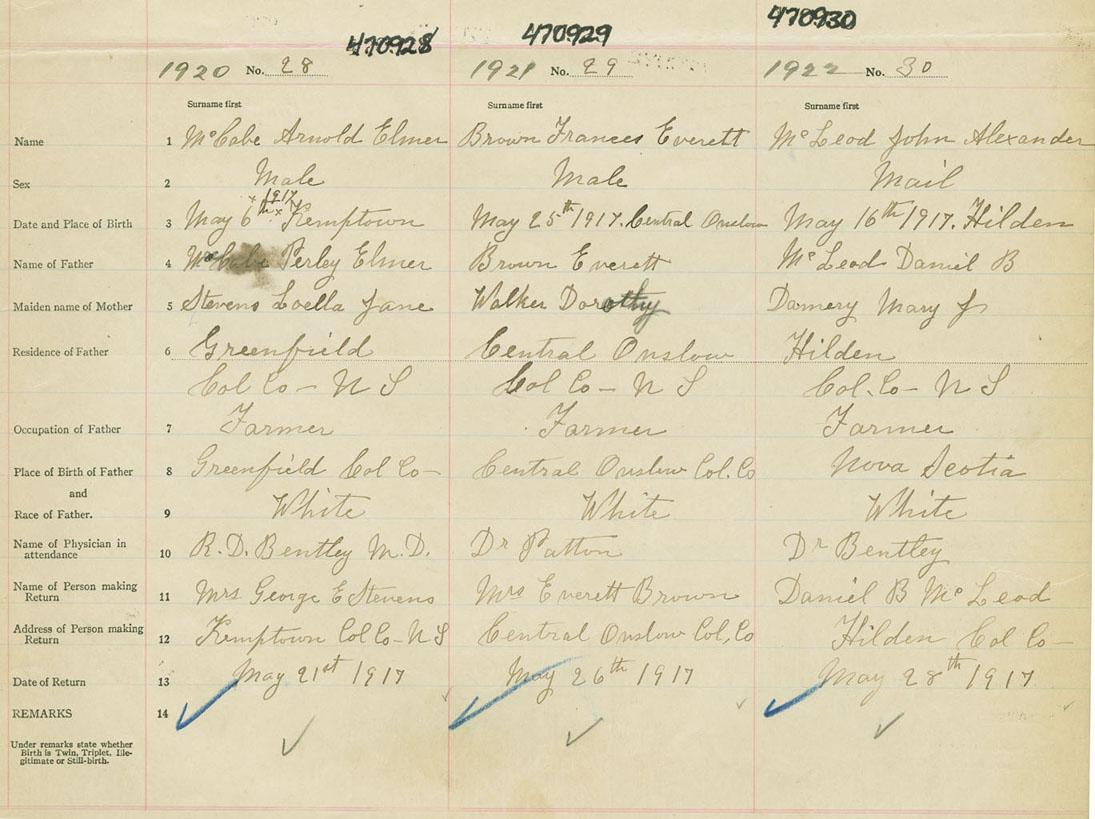 470928 470929 470930
1920 No. 28 1921 No. 29 1922 No. 30
Surname first Surname first Surname first
Name 1 McCabe Arnold Elmer Brown Frances Everett McLeod John Alexander
Sex 2 Male Male Mail
1917
Date and Place of Birth 3 May 6th x Kemptown May 25th 1917. Central Onslow May 16th 1917. Hilden
Name of Father 4 McCabe Perley Elmer Brown Everett McLeod Daniel B
Maiden name of Mother 5 Stevens Loella Jane Walker Dorothy Damery Mary J
Residence of Father 6 Greenfield Central Onslow Hilden
Col Co - N S Col Co - N S Col. Co - N S
Occupation of Father 7 Farmer Farmer Farmer
Place of Birth of Father 8 Greenfield Col Co - Central Onslow Col. Co Nova Scotia
and
Race of Father. 9 White White White
Name of Physician in
attendance 10 R. D. Bentley M. D. Dr Patton Dr Bentley
Name of Person making
Return 11 Mrs George E Stevens Mrs Everett Brown Daniel B McLeod
Address of Person making
Return 12 Kemptown Col Co - N S Central Onslow Col, Co Hilden Col Co -
Date of Return 13 May 21st 1917 May 26th 1917 May 28th 1917
REMARKS 14
Under remarks state whether
Birth is Twin, Triplet, Ille-
gitimate or Still-birth.